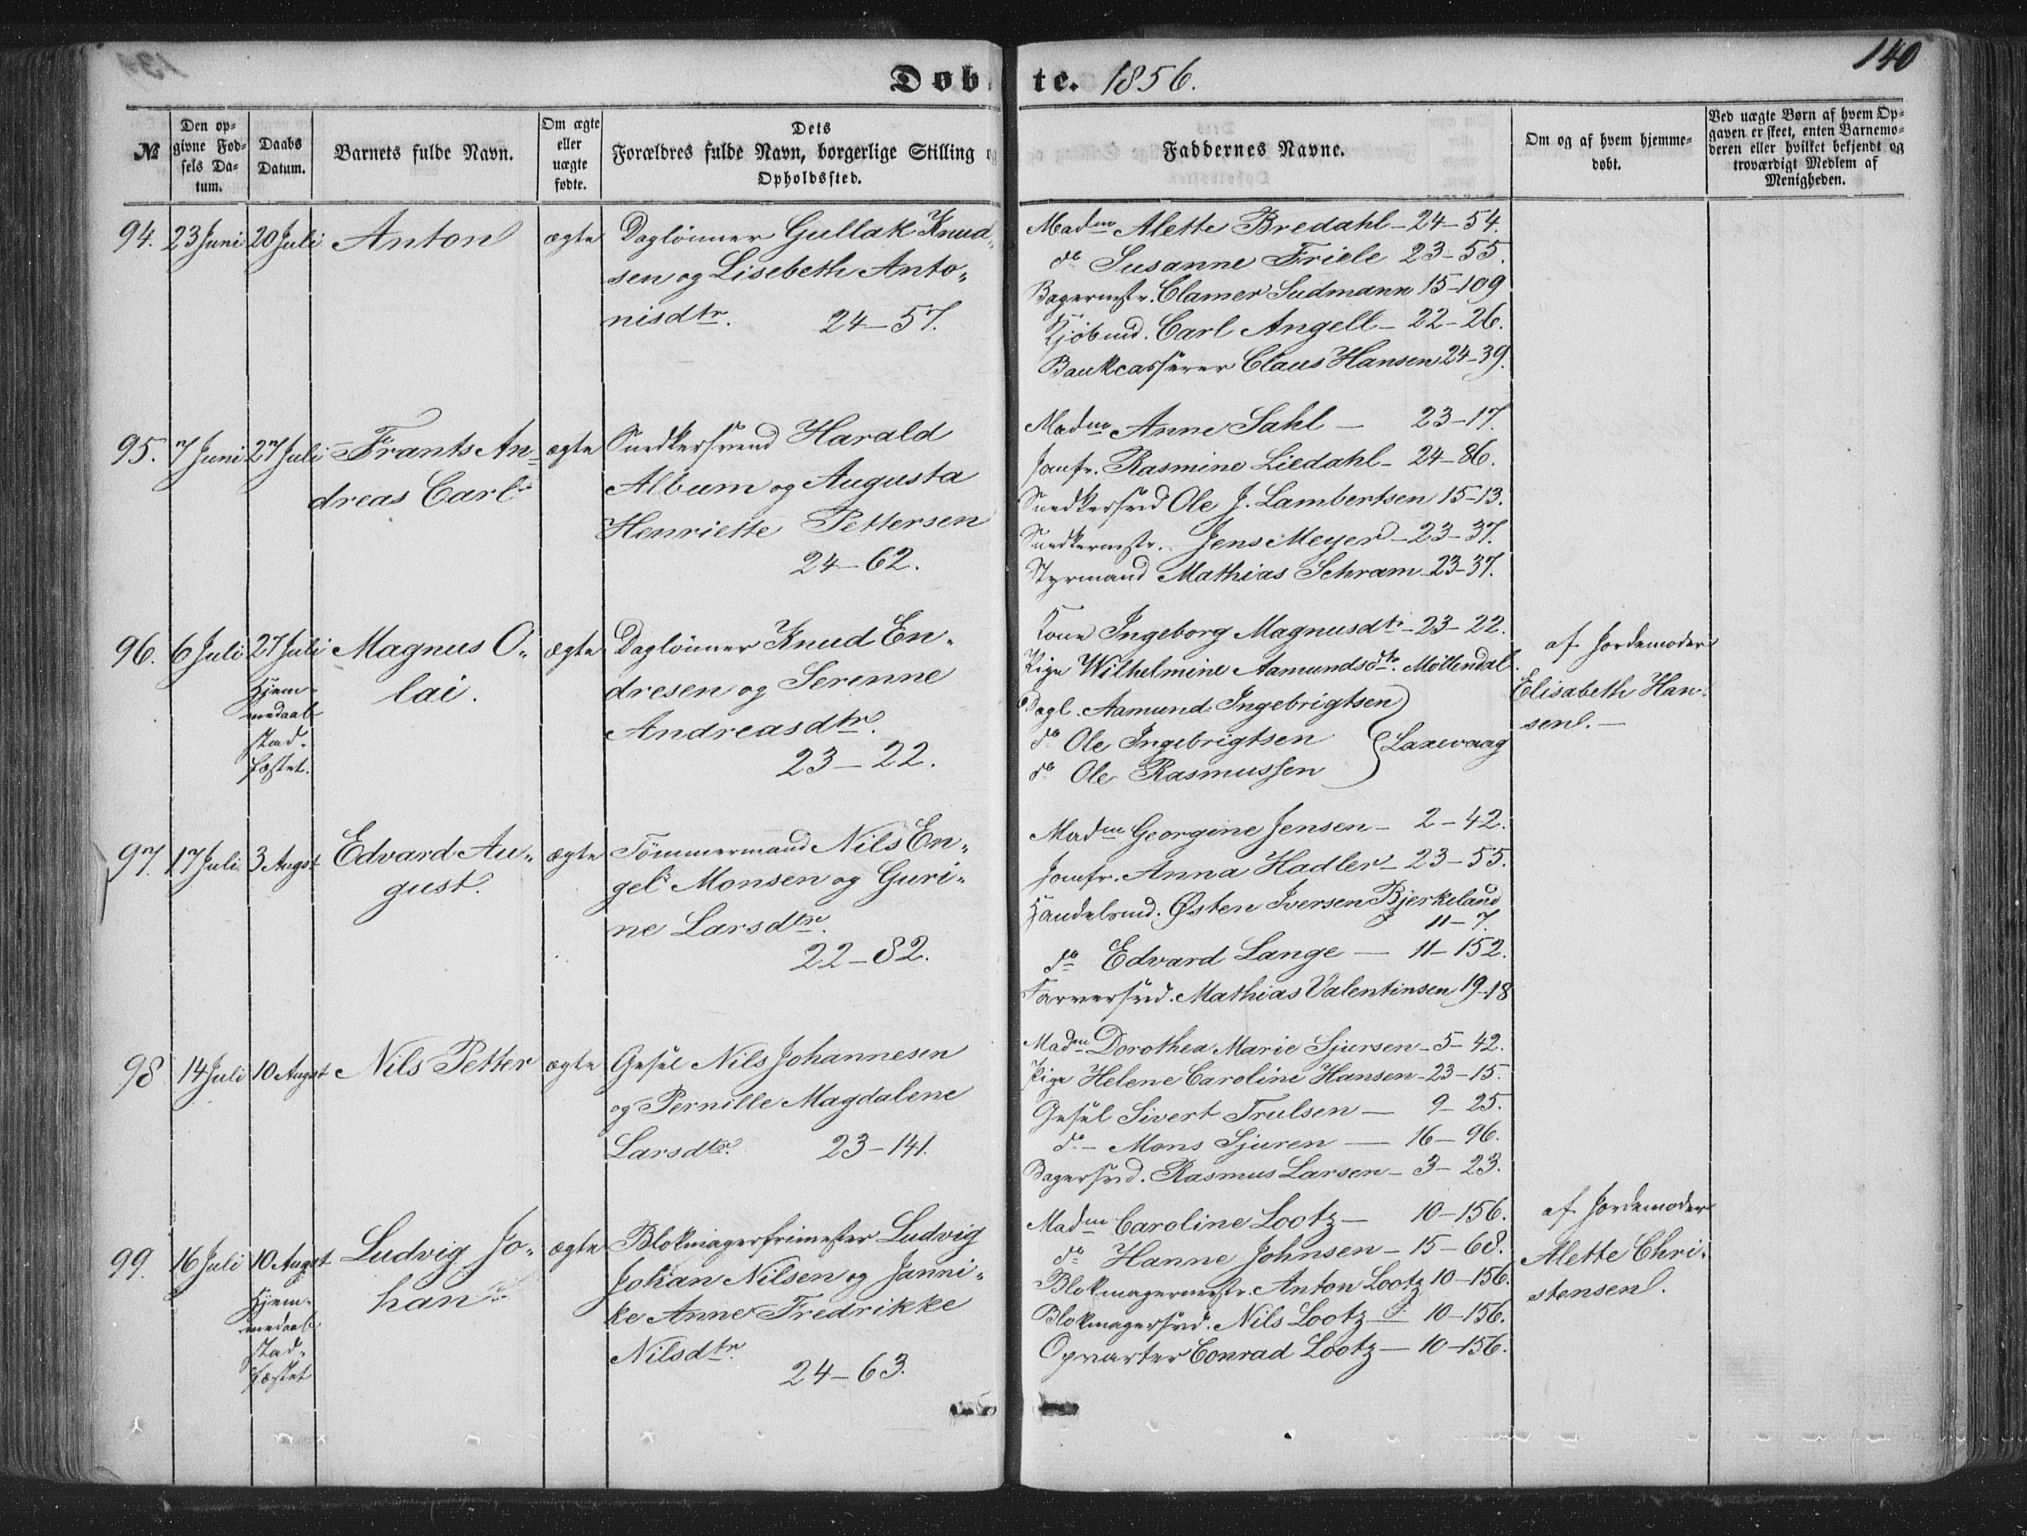 140
Døbte. 1856.
№
Den op-
givne Fød-
sels Da-
tum.
Daabs
Datum.
Barnets fulde Navn.
Om ægte
eller
uægte
fødte.
Dets
Forældres fulde Navn, borgerlige Stilling og
Opholdssted.
Faddernes Navne.
Om og af hvem hjemme-
døbt.
Ved uægte Børn af hvem Op-
gaven er skeet, enten Barnemo-
deren eller hvilket bekjendt og
troværdigt Medlem af
Menigheden.
94. 23 Juni 20 Juli Anton ægte Daglønner Gullak Knud-
sen og Lisebeth Anto-
nisdtr. 24-57.
Madm Alette Bredahl - 24-54.
do Susanne Friele 23-55.
Bagermstr. Clamer Sudmann 15-109
Kjøbmd. Carl Angell - 22-26.
Bankcasserer Claus Hansen 24-39.
95. 7 Juni 27 Juli Frants An- ægte Snedkersvend Harald
dreas Carl Album og Augusta
Henriette Pettersen
24-62.
Madm Anne Sahl - 23-17.
Jomfr. Rasmine Liedahl - 24-86.
Snedkersvd Ole J. Lambertsen 15-13.
Snedkermstr. Jens Meyer - 23-37.
Styrmand Mathias Schram - 23-37.
96. 6 Juli 27 Juli Magnus O- ægte Daglønner Knud En-
lai. dresen og Serenne
Andreasdtr.
23-22.
Hjem-
medaab
stad-
fæstet.
Kone Ingeborg Magnusdtr - 23-22.
Pige Wilhelmine Aamundsdtr. Møllendal.
Dagl. Aamund Ingebrigtsen
do Ole Ingebrigtsen } Laxevaag
do Ole Rasmussen
af Jordemoder
Elisabeth Han-
sen. -
97. 17 Juli 3 Augst Edvard Au- ægte Tømmermand Nils En-
gust. gel Monsen og Guri-
ne Larsdtr.
22-82.
Madm Georgine Jensen - 2-42.
Jomfr. Anna Hadler - 23-55.
Handelsmd. Østen Iversen Bjerkeland
11-7.
do Edvard Lange - 11-152.
Farversvd. Mathias Valentinsen 19-18
98 14 Juli 10 Augst Nils Petter ægte Gesel Nils Johannesen
og Pernille Magdalene
Larsdtr. 23-141.
Madm Dorothea Marie Sjursen - 5-42.
Pige Helene Caroline Hansen - 23-15.
Gesel Sivert Trulsen - 9-25.
do - Mons Sjuren - 16-96.
Bagersvd. Rasmus Larsen - 3-23.
99. 16 Juli 10 Augst Ludvig Jo- ægte Blokmagerfrimester Ludvig
han Johan Nilsen og Janni-
ke Anne Fredrikke
Nilsdtr.
24-63.
Hjem-
medaab
stad-
fæstet
Madm Caroline Lootz - 10-156.
do Hanne Johnsen - 15-68.
Blokmagermestr. Anton Lootz 10-156.
Blokmagersvd. Nils Lootz - 10-156.
Opvarter Conrad Lootz - 10-156.
af Jordemoder
Alette Chri-
stensen.